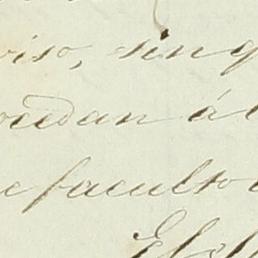 viso, sin q
ocedan á l
e facultо
El